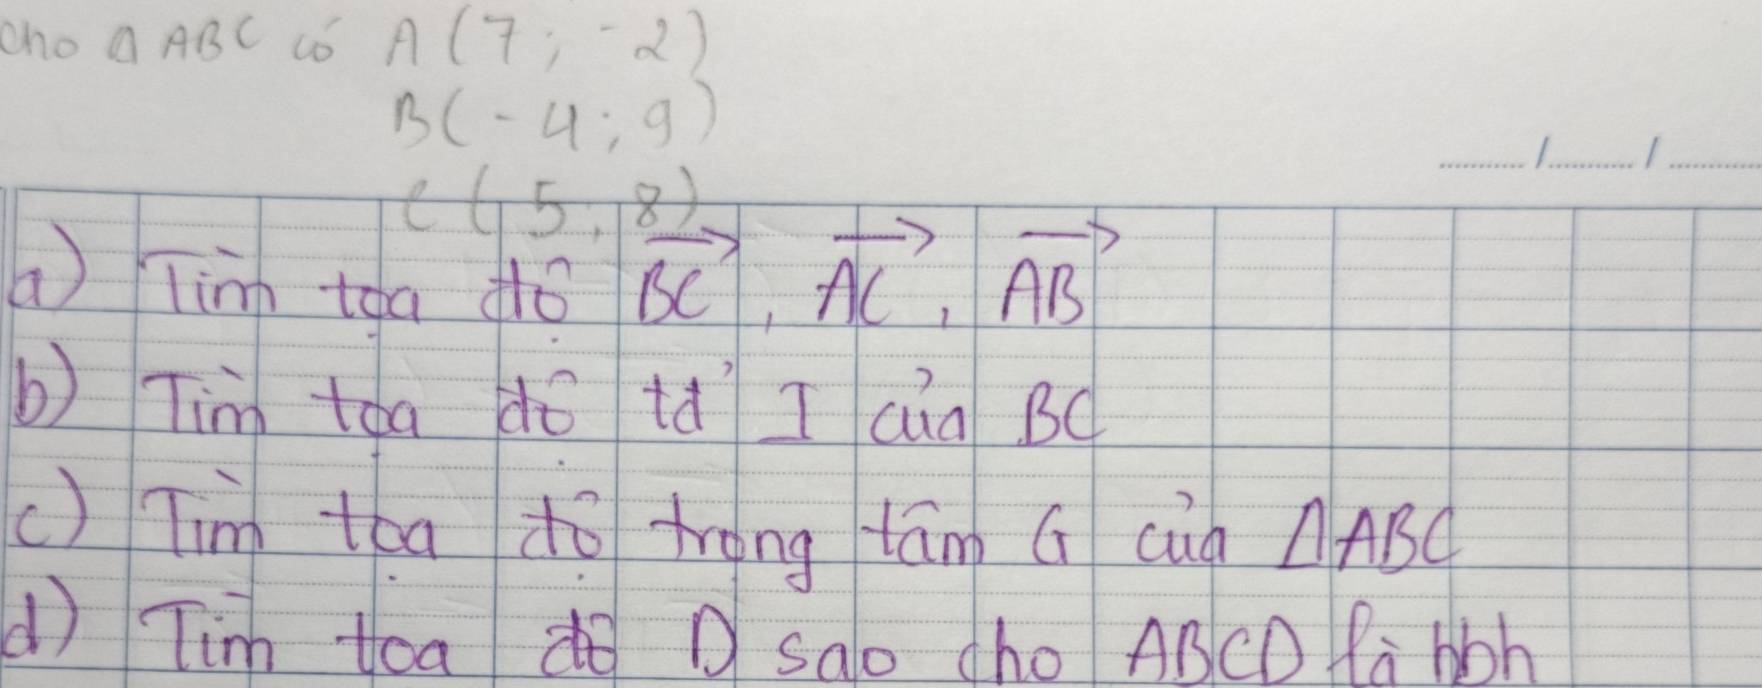 Cho Δ ABC có A(7; -2)
B(-4; 9)
C(5; 8)
a) Tìm tọa độ \overrightarrow{BC}, \overrightarrow{AC}, \overrightarrow{AB}
b) Tìm tọa độ tđ' I của BC
c) Tìm tọa độ trọng tâm G của ΔABC
d) Tìm tọa độ D sao cho ABCD là hbh